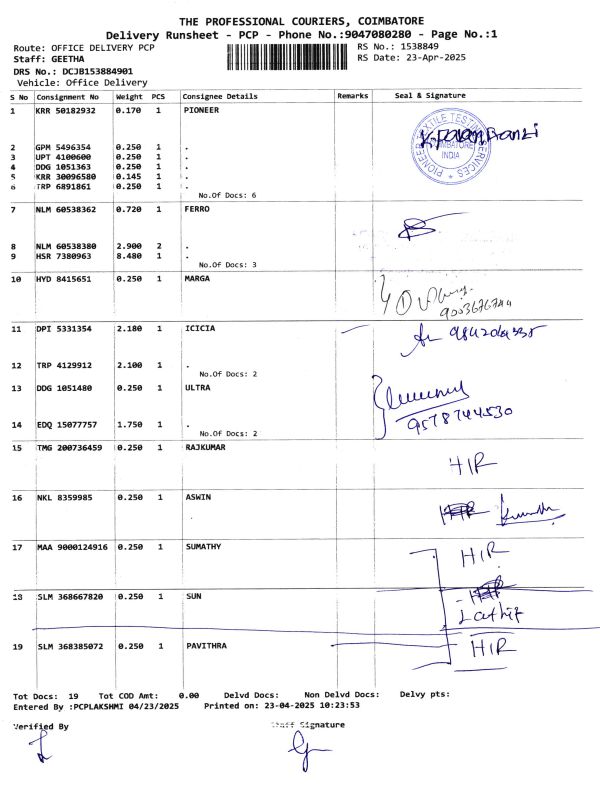 THE PROFESSIONAL COURIERS, COIMBATORE
Delivery Runsheet - PCP - Phone No.:9047080280 - Page No.:1
Route: OFFICE DELIVERY PCP RS No.: 1538849
Staff: GEETHA RS Date: 23-Apr-2025
DRS No.: DCJB153884901
Vehicle: Office Delivery
S No Consignment No Weight PCS Consignee Details Remarks Seal & Signature
1 KRR 50182932 0.170 1 PIONEER
PIONEER TEXTILE TESTING SERVICES
COIMBATORE
INDIA
2 GPM 5496354 0.250 1 .
3 UPT 4100600 0.250 1 .
4 DDG 1051363 0.250 1 .
5 KRR 30096580 0.145 1 .
6 TRP 6891861 0.250 1 .
No.Of Docs: 6
7 NLM 60538362 0.720 1 FERRO
8 NLM 60538380 2.900 2 .
9 HSR 7380963 8.480 1 .
No.Of Docs: 3
10 HYD 8415651 0.250 1 MARGA
11 DPI 5331354 2.180 1 ICICIA
12 TRP 4129912 2.100 1 .
No.Of Docs: 2
13 DDG 1051480 0.250 1 ULTRA
9578744530
14 EDQ 15077757 1.750 1 .
No.Of Docs: 2
15 TMG 200736459 0.250 1 RAJKUMAR
HIR
16 NKL 8359985 0.250 1 ASWIN
17 MAA 9000124916 0.250 1 SUMATHY
HIR
18 SLM 368667820 0.250 1 SUN
Lathif
19 SLM 368385072 0.250 1 PAVITHRA
HIR
Tot Docs: 19 Tot COD Amt: 0.00 Delvd Docs: Non Delvd Docs: Delvy pts:
Entered By :PCPLAKSHMI 04/23/2025 Printed on: 23-04-2025 10:23:53
Verified By Staff Signature